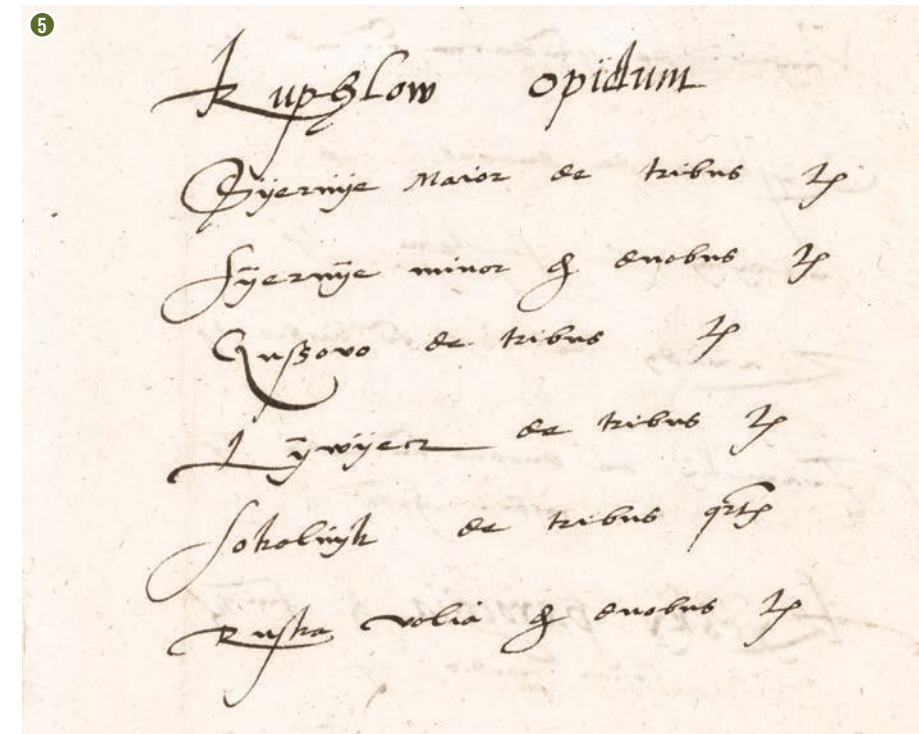 5
Kuphlow opidum
Syernye Maior de tribus
Syernye minor duobus
Guszovo de tribus
Lywyecz de tribus
Sokolnyk de tribus
Ruska volia duobus